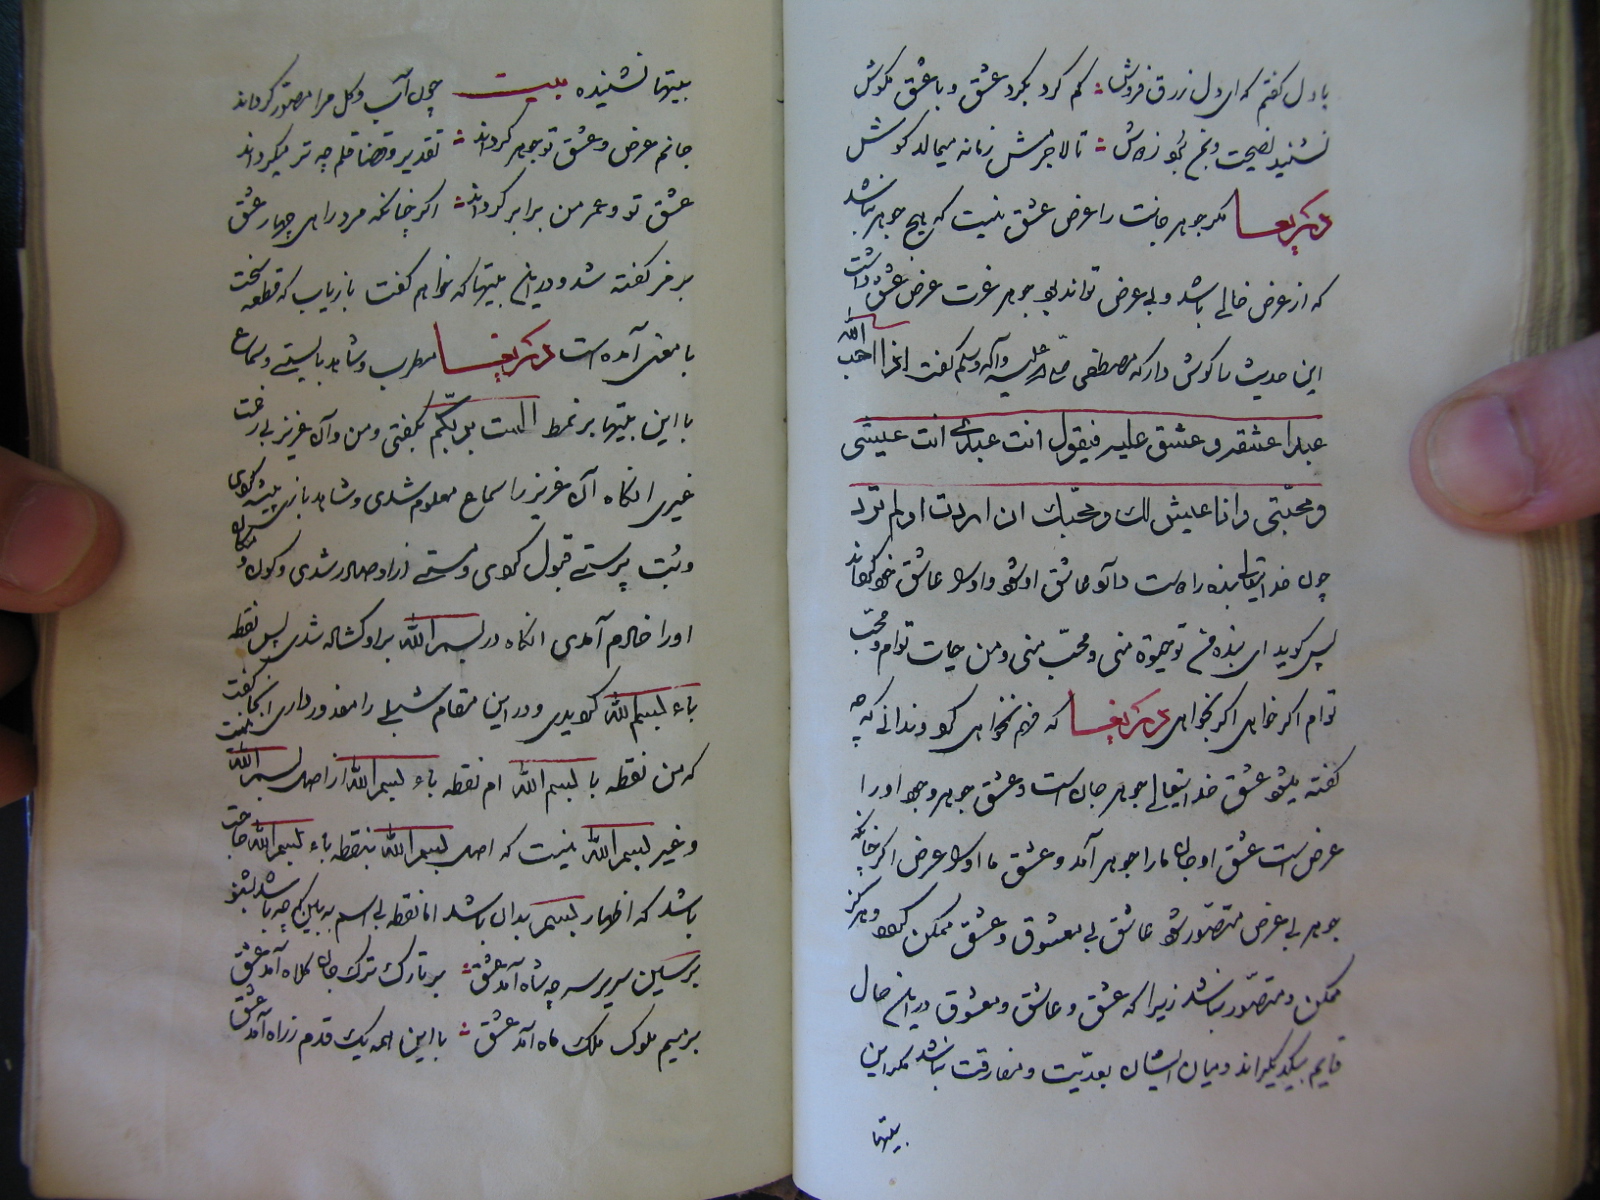 با دل گفتم که ای دل زرق فروش ؞ کم کرد بکرد عشق و با عشق مکوش
نشنید نصیحت و بمن بر زد دوش ؞ تا لاجرمش زمانه میمالد کوش
ای عزیز مکر جوهر جانت را عرض عشق نیست که هیچ جوهر نباشد
که از عرض خالی باشد و بی عرض نتواند بود جوهر عزت عرض عشق دانست
این حدیث را کوش دار که مصطفی صلی الله علیه و آله وسلم کفت اذا احب الله
عبدا عشقه و عشق علیه فیقول انت عبدی انت عیشی
و محبتی و انا عیش لک و محبک ان اردت او لم ترد
چون خدایتعالی بنده راست تا او عاشق او شود و او را عاشق خود کرداند
پس کوید ای بنده من تو حیوة منی و محب منی و من حیات توام و محب
توام اکر خواهی اکر نخواهی ای عزیز که فهم نخواهی کرد و ندانی که چه
کفته میشود عشق خدایتعالی جوهر جان است و عشق جوهر وجود او را
عرض است عشق او جان ما را جوهر آمد و عشق ما او را عرض اکر چنانکه
جوهر بی عرض متصور شود عاشق بی معشوق و عشق ممکن بود و هرکز
ممکن و متصور نباشد زیرا که عشق و عاشق و معشوق در این حال
قایم بیکدیکراند و میان ایشان بعدیت و مفارقت نباشد مکر این
بیتها
بیتها نشنیده بیت چون آب و کل مرا مصور کردند
جانم عرض و عشق تو جوهر کردند ؞ تقدیر و قضا قلم چو تر میکردند
عشق تو و عمر من برابر کردند ؞ اکر چنانکه مرد راهی چهار عشق
بر مز کفته شد و در این بیتها که خواهم کفت بازیاب که قطعه سخت
با معنی آمده است ای عزیز مطرب و شاهد بایستی و سماع
با این بیتها بر نمط الست بربکم بکفتی و من و آن عزیز بی زحمت
غیری آنکاه آن عزیز را سماع معلوم شدی و شاهد بازی پیشه کردی
و بت پرستی قبول کردی و مستی از او صادر شدی و کون و مکان
او را خادم آمدی آنکاه در بسم الله بر او کشاده شدی پس نقطه
باء بسم الله کردیدی و در این مقام شبلی را معذور داری آنجا که کفت
که من نقطه با بسم الله ام نقطه باء بسم الله از اصل بسم الله نیست
و غیر بسم الله نیست که اصل بسم الله بنقطه باء بسم الله حاجت
باشد که اظهار بسم بدان باشد اما نقطه بی اسم ببین که چه باشد بشنو
بر سین سریر سر چو شاه آمد عشق ؞ بر تارک ترک جان کلاه آمد عشق
بر میم ملوک ملک ماه آمد عشق ؞ با این همه یک قدم ز راه آمد عشق